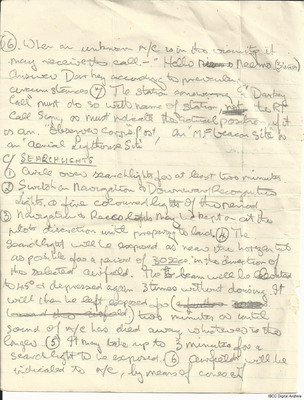 (6). When an unknown A/C is in the vicinity it
may receive the call - "Hello
Answer Darkey according to previous
circumstances (7) The station answering "Darkey
Call" must do so with name of station, not the R/T
Call Sign, or must indicate the actual position, if it
is an. "Observer Corps Post", an "M/F beacon Site" or
an "aerial lighthouse Site"
c/ SEARCHLIGHTS
1 Circle over searchlight for at least two minutes
2 Switch on Navigation & Downward Recognition
lights, or five coloured light of the period
3 Navigation & Recco lights may be kept on at the
pilots discretion until preparing to land (4) The
searchlight will be exposed as near the horizontal
as possible for a period of 30 secs in the direction of
the selected airfield. The beam will be elevated
to 45° & depressed again 3 times without dousing. It
will then be left exposed for
two minutes or until
sound of A/C has died away whichever is the
longer. (5) It may take up to 3 minutes for a
searchlight to be exposed. (6) Airfields will be
indicated to A/C, by means of cones of
IBCC Digital Archive